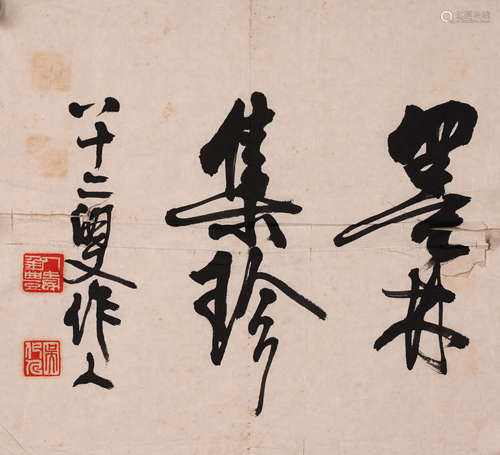 墨林
集珍
八十二叟作人